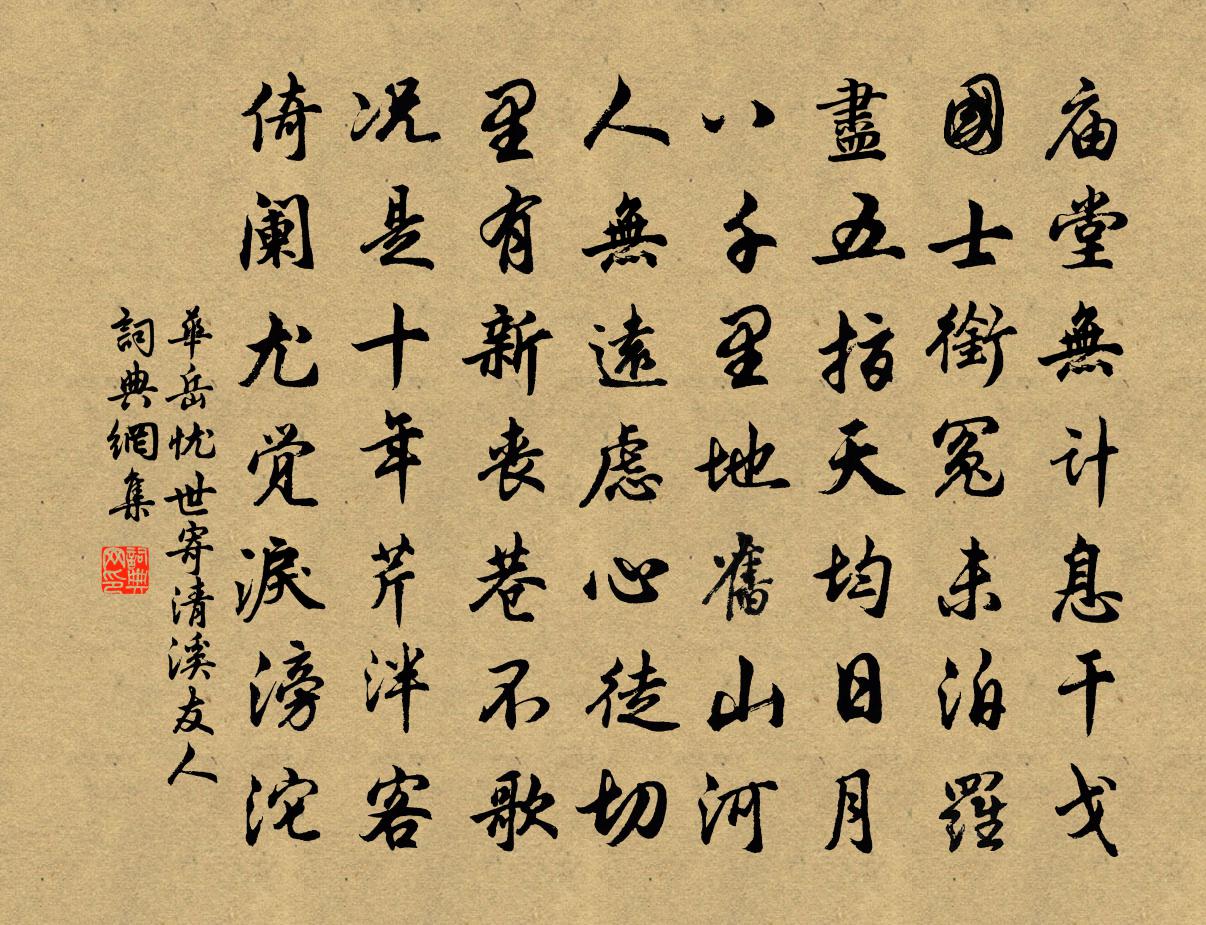 庙堂無计息干戈
國士銜冤未泊羅
盡五指天均日月
八千里地舊山河
人無遠慮心徒切
里有新丧巷不歌
况是十年芹泮客
倚阑尤觉淚滂沱
華岳忧世寄清溪友人
詞典網集
詞典網印